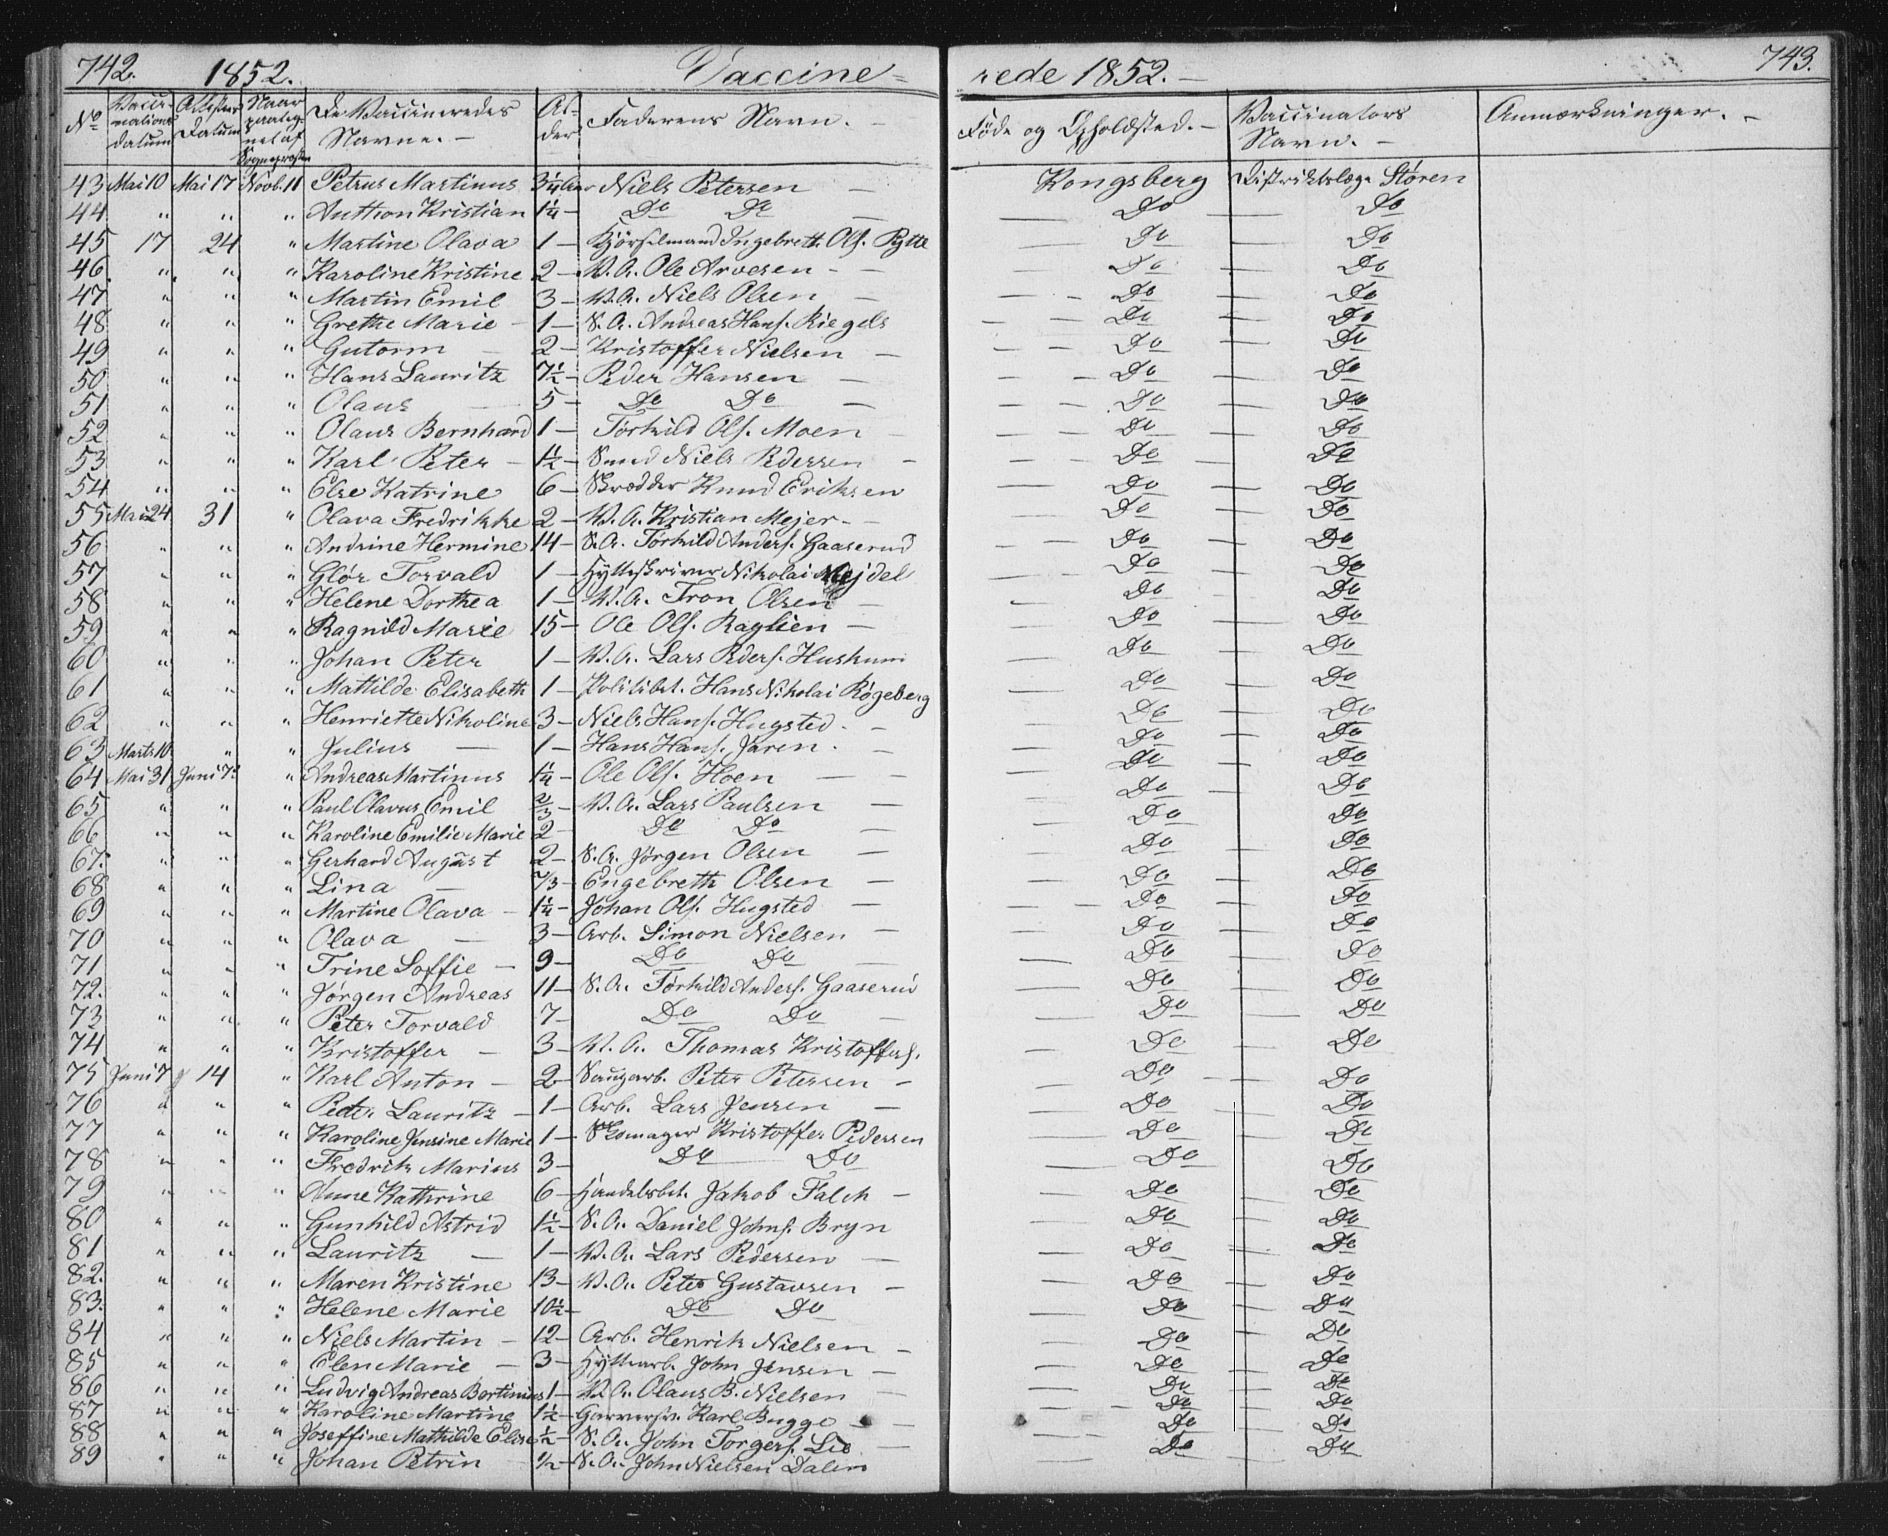 742. 1852. Vaccine= rede 1852. — 743.
No Vaccinations Datum Attestens Datum Naar paateg net af Sogneprosten De Vaccineredes Navne. — Alder Faderens Navn. — Føde og Opholdsted. — Vaccinators Navn. — Anmærkninger. —
43 Mai 10 Mai 17 Novb. 11 Petrus Martinus 3¼ Aar Niels Petersen — Kongsberg Distriktslæge Støren
44 " " " Anthon Kristian 1¼ — Do Do — Do — Do
45 17 24 " Martine Olava 1 — Kjørselmand Ingebrett Ols. Rytte — Do — Do
46 " " " Karoline Kristine 2 — W. A. Ole Arvesen — — Do — Do
47 " " " Martin Emil 3 — W. A. Niels Olsen — — Do — Do
48 " " " Grethe Marie — 1 — S. A. Andreas Hans. Riegels — Do — Do
49 " " " Gutorm — 2 — Kristoffer Nielsen — — Do — Do
50 " " " Hans Lauritz 7½ — Peder Hansen — — Do — Do
51 " " " Olaus — 5 — Do Do — — Do — Do
52 " " " Olaus Bernhard 1 — Torkild Ols. Moen — — Do — Do
53 " " " Karl Peter — 1½ — Smed Niels Pedersen — — Do — Do
54 " " " Else Katrine 6 — Skrædder Knud Eriksen — Do — Do
55 Mai 24 31 " Olava Fredrikke 2 — W. A. Kristian Mejer — — Do — Do
56 " " " Andrine Hermine 14 — S. A. Torkild Anders. Gaaserud — Do — Do
57 " " " Glør Torvald 1 — Hytteskriver Nikolai Mejdel — Do — Do
58 " " " Helene Dorthea 1 — W. A. Tron Olsen — — Do — Do
59 " " " Ragnild Marie 15 — Ole Ols. Raglien — — Do — Do
60 " " " Johan Peter 1 — W. A. Lars Peders. Huskum — Do — Do
61 " " " Mathilde Elisabeth 1 — Politibet. Hans Nikolai Røgeberg — Do — Do
62 " " " Henriette Nikoline 3 — Niels Hans. Hugsted — — Do — Do
63 Marts 10 " " Julius — 1 — Hans Hans. Jaren. — — Do — Do
64 Mai 31 Juni 7 " Andreas Martinus 1¼ — Ole Ols. Hoen — — Do — Do
65 " " " Paul Olavus Emil 2/3 — W. A. Lars Paulsen — — Do — Do
66 " " " Karoline Emilie Marie 2 — Do Do — — Do — Do
67. " " " Gerhard August 2 — S. A. Jørgen Olsen — — Do — Do
68 " " " Lina — 7/3 — Engebreth Olsen — — Do — Do
69 " " " Martine Olava — 1¼ — Johan Ols. Hugsted — — Do — Do
70 " " " Olava — 3 — Arb. Simon Nielsen — — Do — Do
71 " " " Trine Soffie — 9 — Do Do — — Do — Do
72. " " " Jørgen Andreas 11 — S. A. Torkild Anders. Gaaserud — Do — Do
73 " " " Peter Torvald 7 — Do Do — — Do — Do
74 " " " Kristoffer — 3 — W. A. Thomas Kristoffers. — Do — Do
75 Juni 7 14 " Karl Anton — 2 — Saugarb. Peter Petersen — — Do — Do
76 " " " Peder Lauritz — 1 — Arb. Lars Jensen — — Do — Do
77 " " " Karoline Jensine Marie 1 — Skomager Kristoffer Pedersen — Do — Do
78 " " " Fredrik Marius 3 — Do Do — Do — Do
79 " " " Anne Kathrine 6 — Handelsbet. Jakob Falck — — Do — Do
80 " " " Gunhild Astrid 1½ — S. A. Daniel Johns. Bryn — Do — Do
81 " " " Lauritz — 1 — W. A. Lars Pedersen — — Do — Do
82. " " " Maren Kristine 13 — W. A. Peter Gustavsen — — Do — Do
83. " " " Helene Marie 10½ — Do Do — Do — Do
84 " " " Niels Martin — 12 — Arb. Henrik Nielsen — — Do — Do
85 " " " Elen Marie — 3 — Hyttearb. John Jensen — — Do — Do
86 " " " Ludvig Andreas Bortinius 1 — W. A. Olaus B. Nielsen — — Do — Do
87 " " " Karoline Martine 1½ — Garversv. Karl Bugge — — Do — Do
88 " " " Joseffine Mathilde Elise ½ — S. A. John Torgers. Lie — — Do — Do
89 " " " Johan Petrin ½ — S. A. John Nielsen Dalen — Do — Do